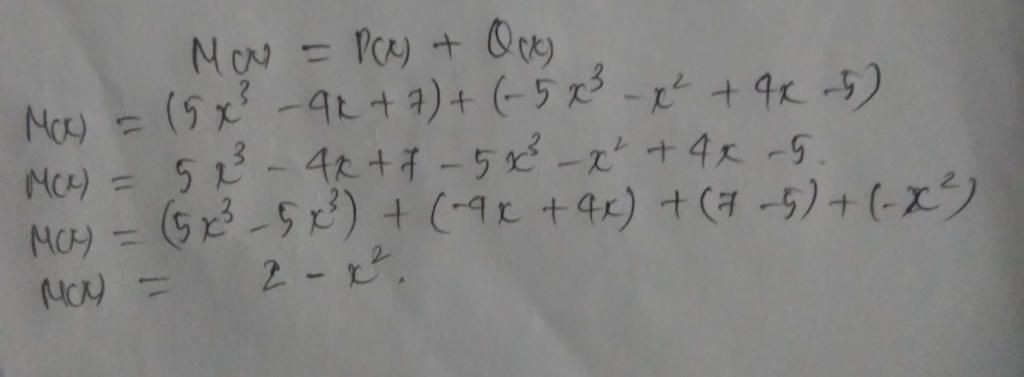 M(x) = P(x) + Q(x)
M(x) = (5x³ - 4x + 7) + (-5x³ - x² + 4x - 5)
M(x) = 5x³ - 4x + 7 - 5x³ - x² + 4x - 5.
M(x) = (5x³ - 5x³) + (-4x + 4x) + (7 - 5) + (-x²)
M(x) = 2 - x².